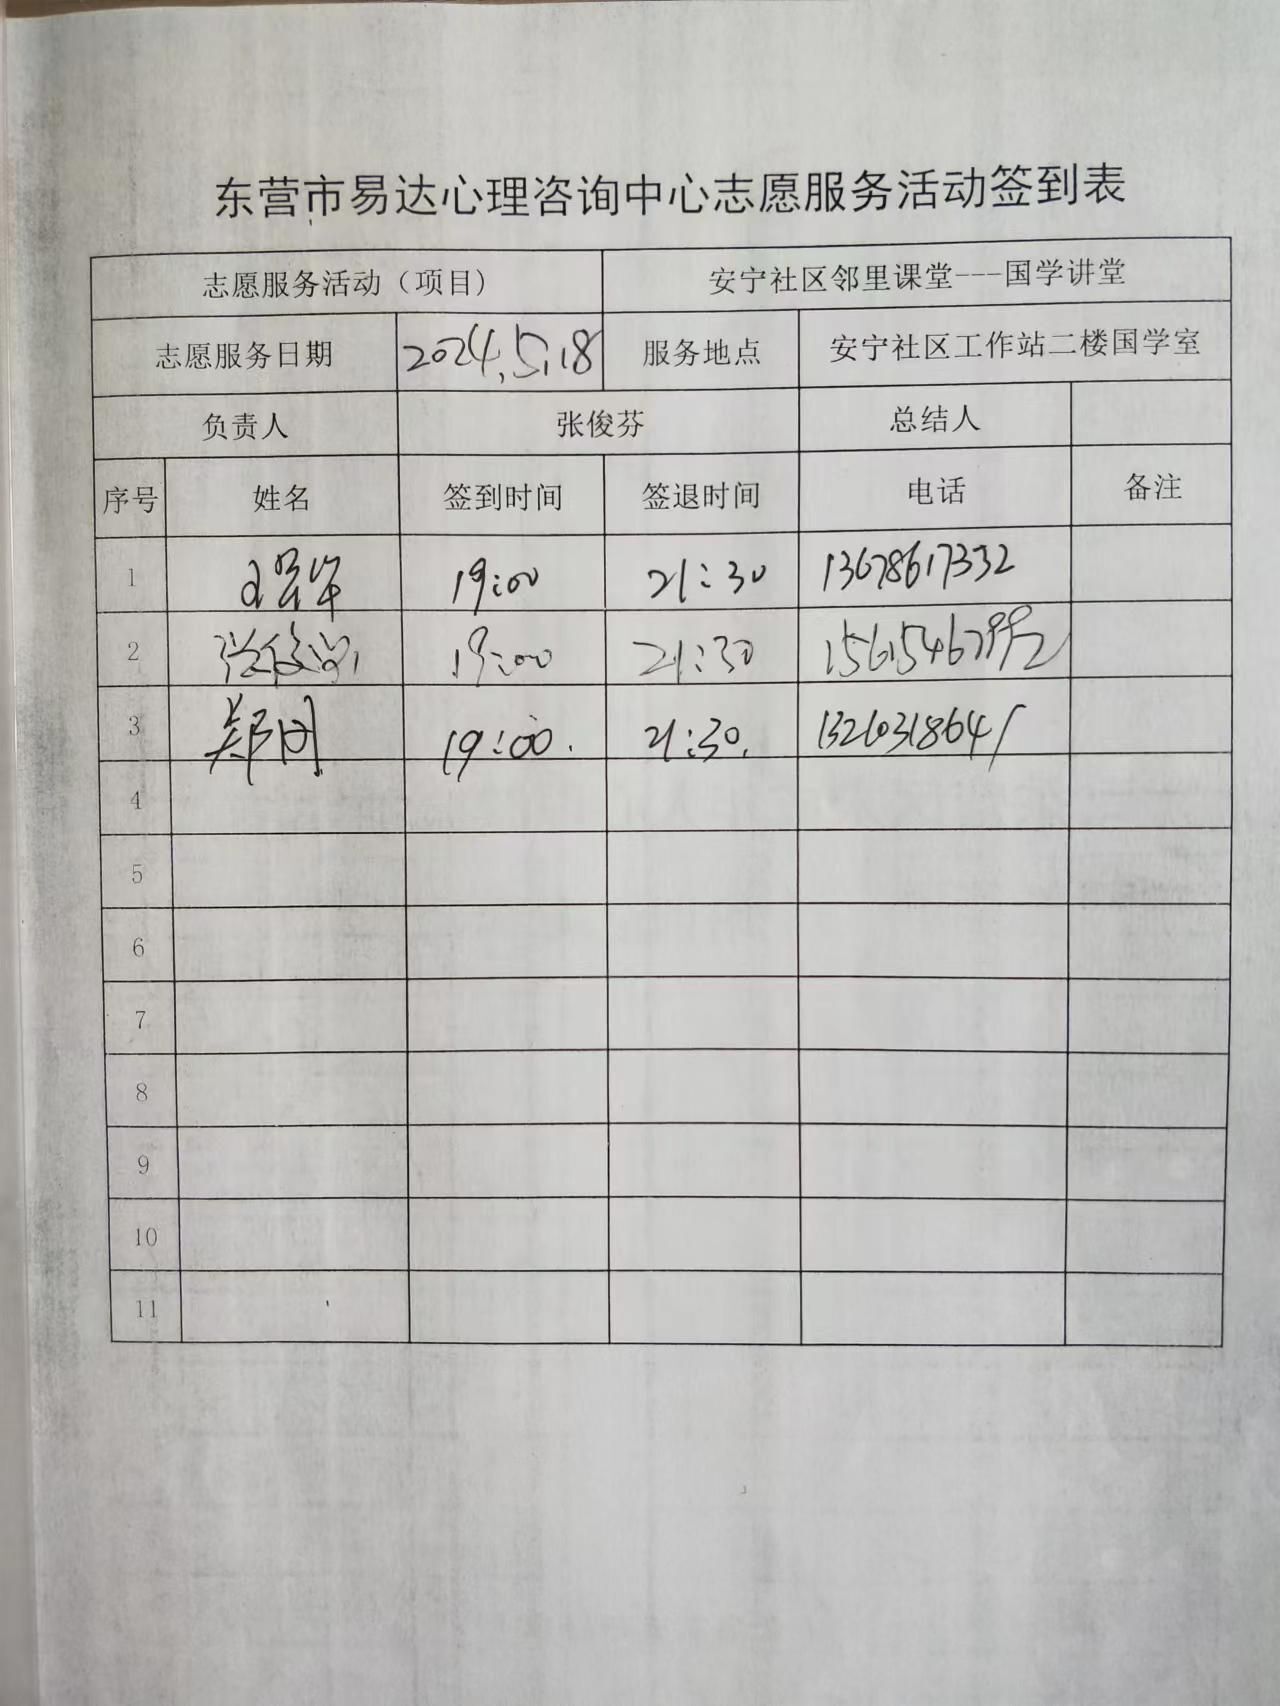 东营市易达心理咨询中心志愿服务活动签到表
志愿服务活动（项目） 安宁社区邻里课堂---国学讲堂
志愿服务日期 2024.5.18 服务地点 安宁社区工作站二楼国学室
负责人 张俊芬 总结人
序号 姓名 签到时间 签退时间 电话 备注
1 19:00 21:30 13678617332
2 19:00 21:30 15615467992
3 19:00. 21:30. 13210318641
4
5
6
7
8
9
10
11